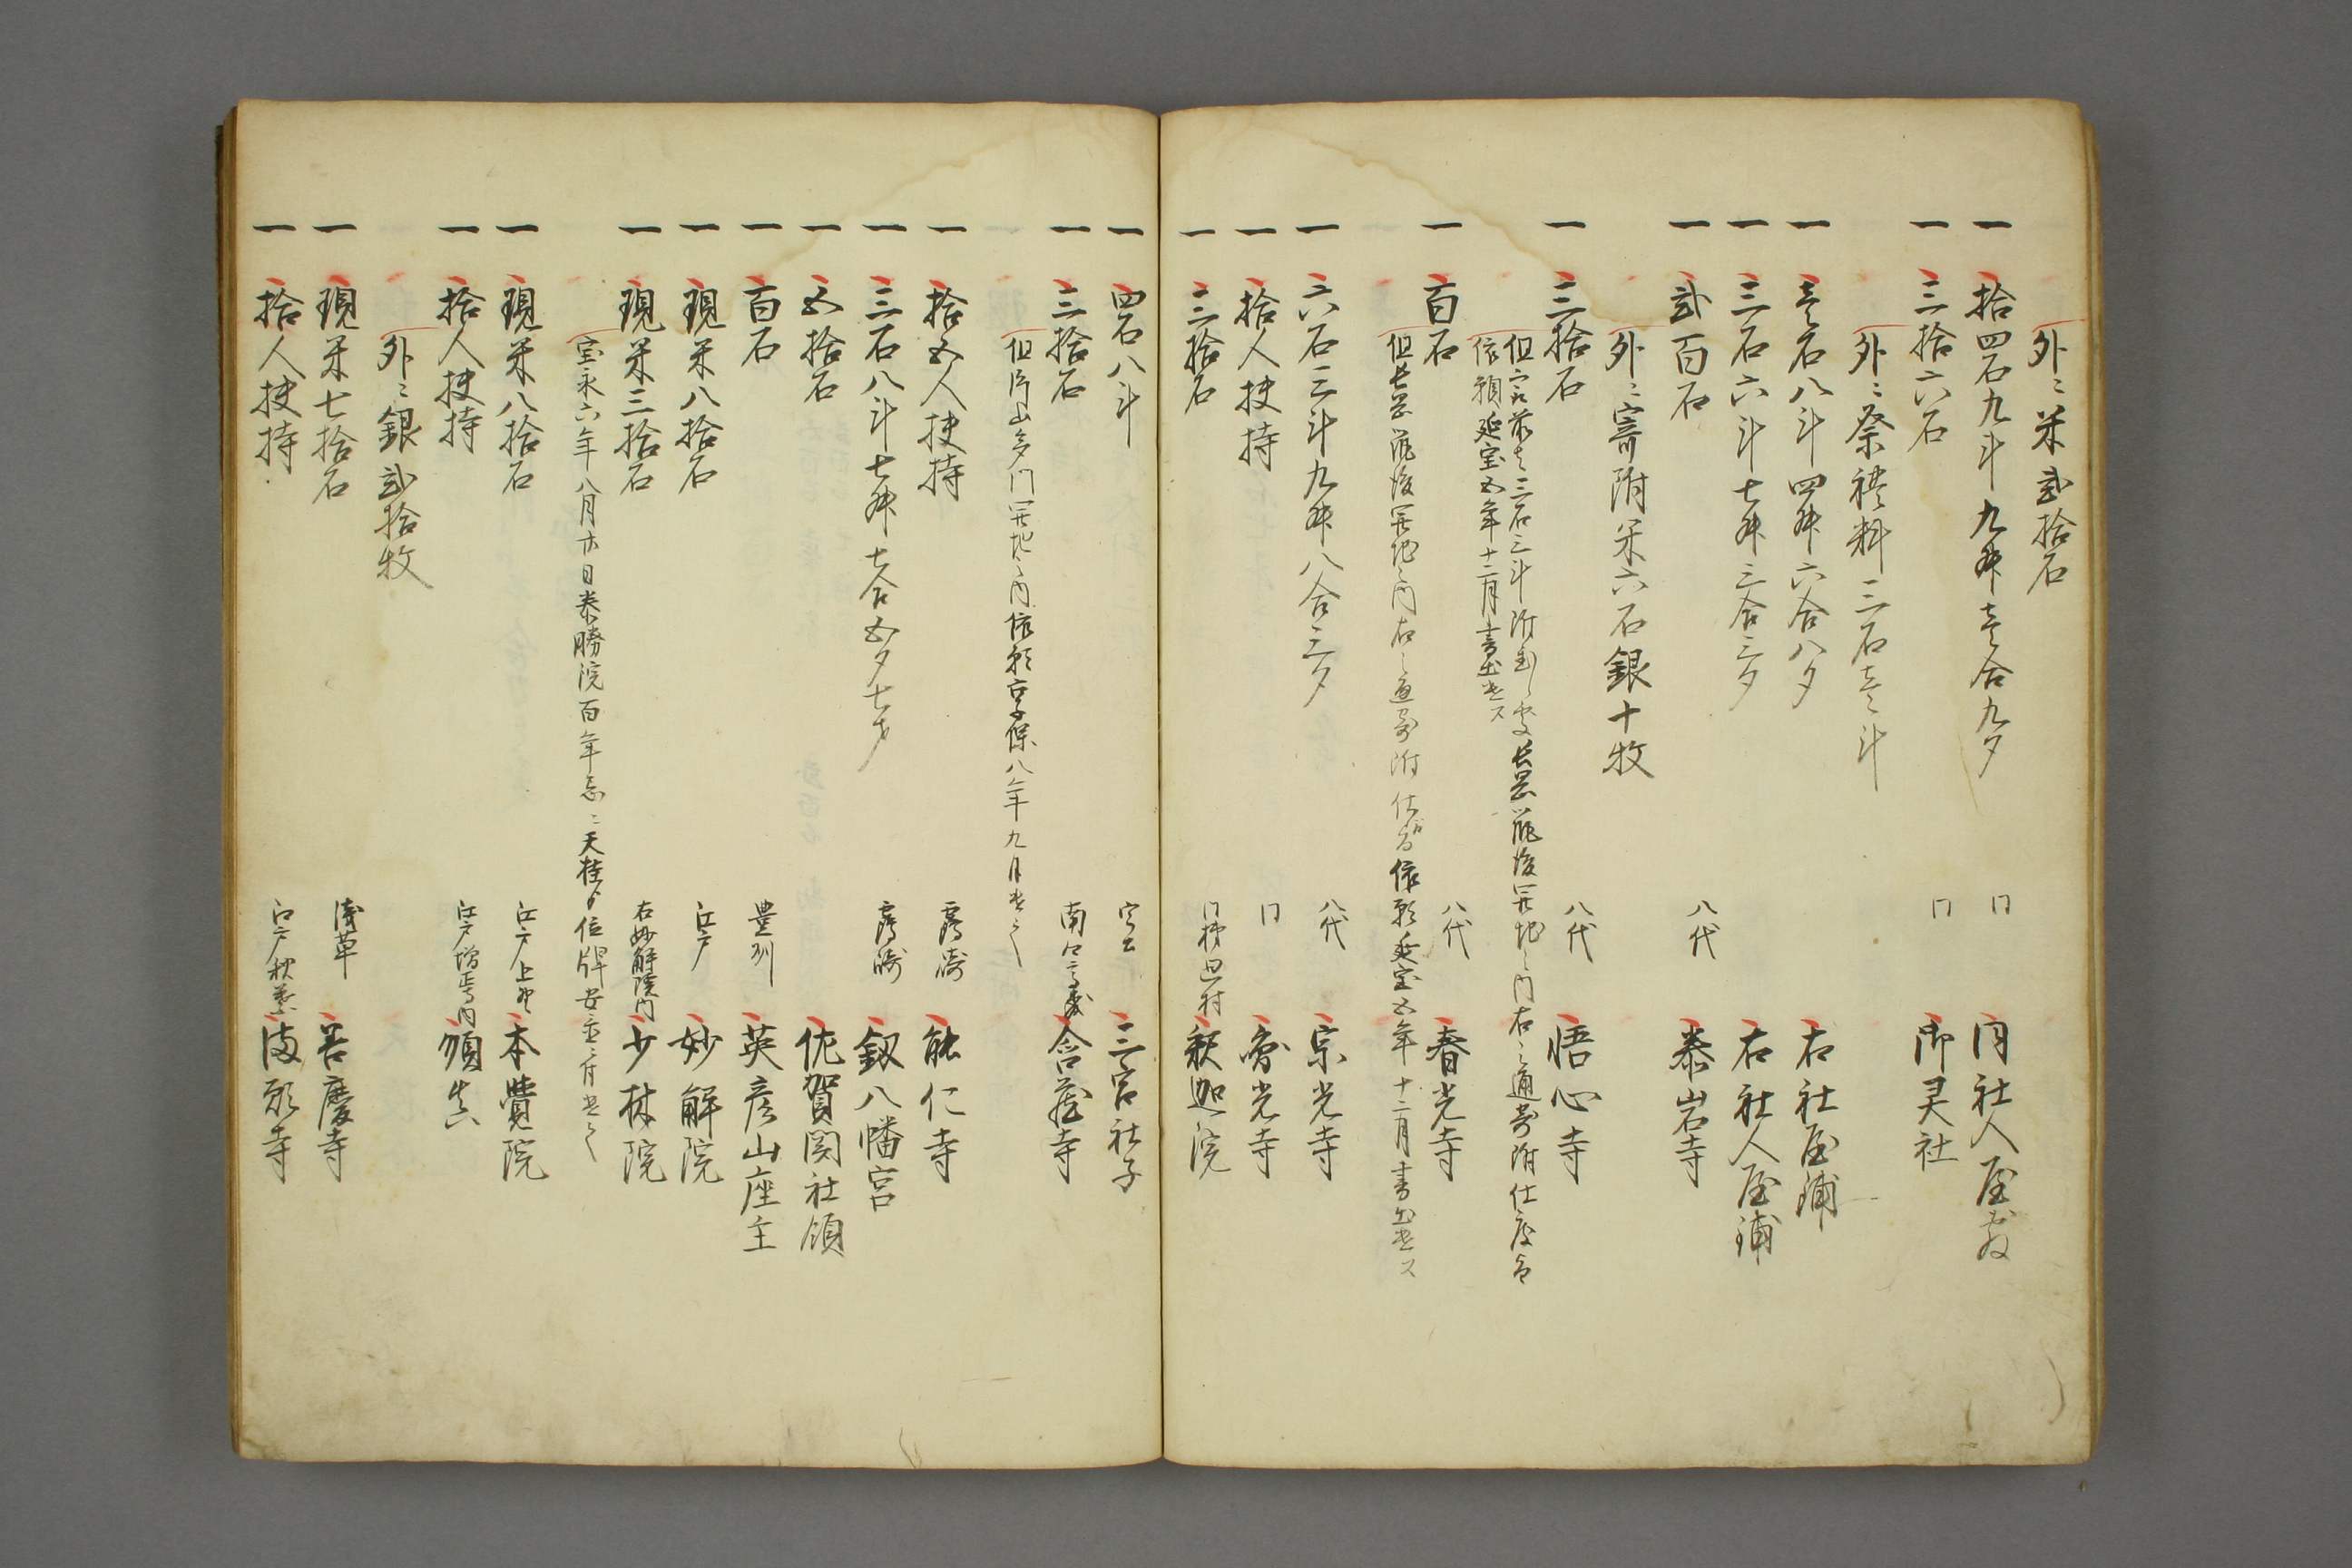 外ニ米弐拾石
一 拾四石九斗九升壱合九夕 同 同社人屋敷
一 三拾六石 同 御灵社
外ニ祭礼料三石壱斗
一 壱石八斗四升六合八夕 右社屋鋪
一 三石六斗七升三合三夕 右社人屋鋪
一 弐百石 八代 泰岩寺
外ニ寄附米六石銀十枚
一 三拾石 八代 悟心寺
但 三石三斗 長岡 右之通寄附仕度
依願延宝五年十二月書出
一 百石 八代 春光寺
但長岡 地之内右之通寄附仕 依願延宝五年十二月書出
一 六石三斗九升八合三夕 八代 宗光寺
一 拾人扶持 同 光寺
一 三拾石 同 村 釈迦院
一 四石八斗 宮 三宮社子
一 三拾石 南 含蔵寺
但片山多門 地之内依願享保八年九月
一 拾五人扶持 霍崎 能仁寺
一 三石八斗七升七合五夕七才 霍崎 釼八幡宮
一 五拾石 佐賀関社領
一 百石 豊州 英彦山座主
一 現米八拾石 江戸 妙解院
一 現米三拾石 右妙解院内 少林院
宝永六年八月 日泰勝院百年忌ニ天桂 位牌安置ニ付
一 現米八拾石 江戸上野 本覚院
一 拾人扶持 江戸増 寺内
外ニ銀弐拾枚
一 現米七拾石 浅草 善慶寺
一 拾人扶持 江戸 満願寺